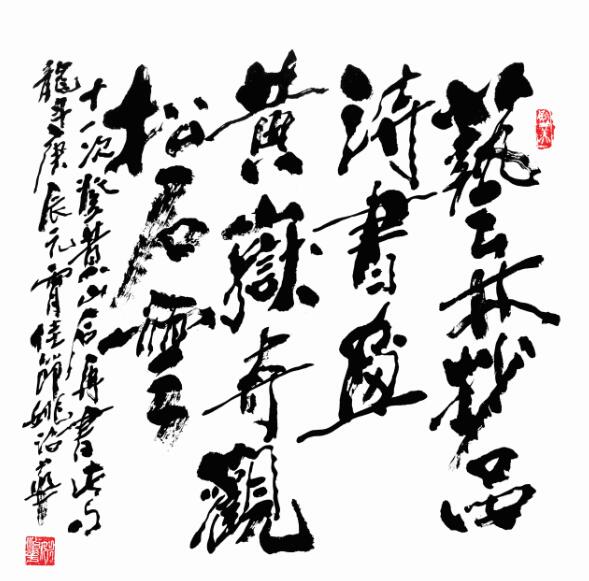 藝林妙品
詩書畫
黃嶽奇觀
松石雲
十一次登黃山后再書此句
龍年庚辰元宵佳節姚治華